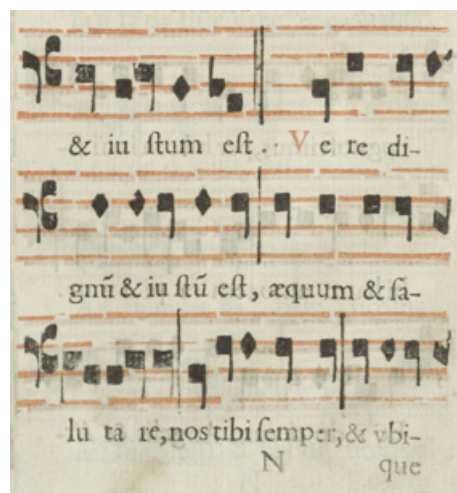 & iu ſtum eſt. Ve re di-
gnū & iu ſtū eſt, æquum & ſa-
lu ta re, nos tibi ſemper, & vbi-
N que